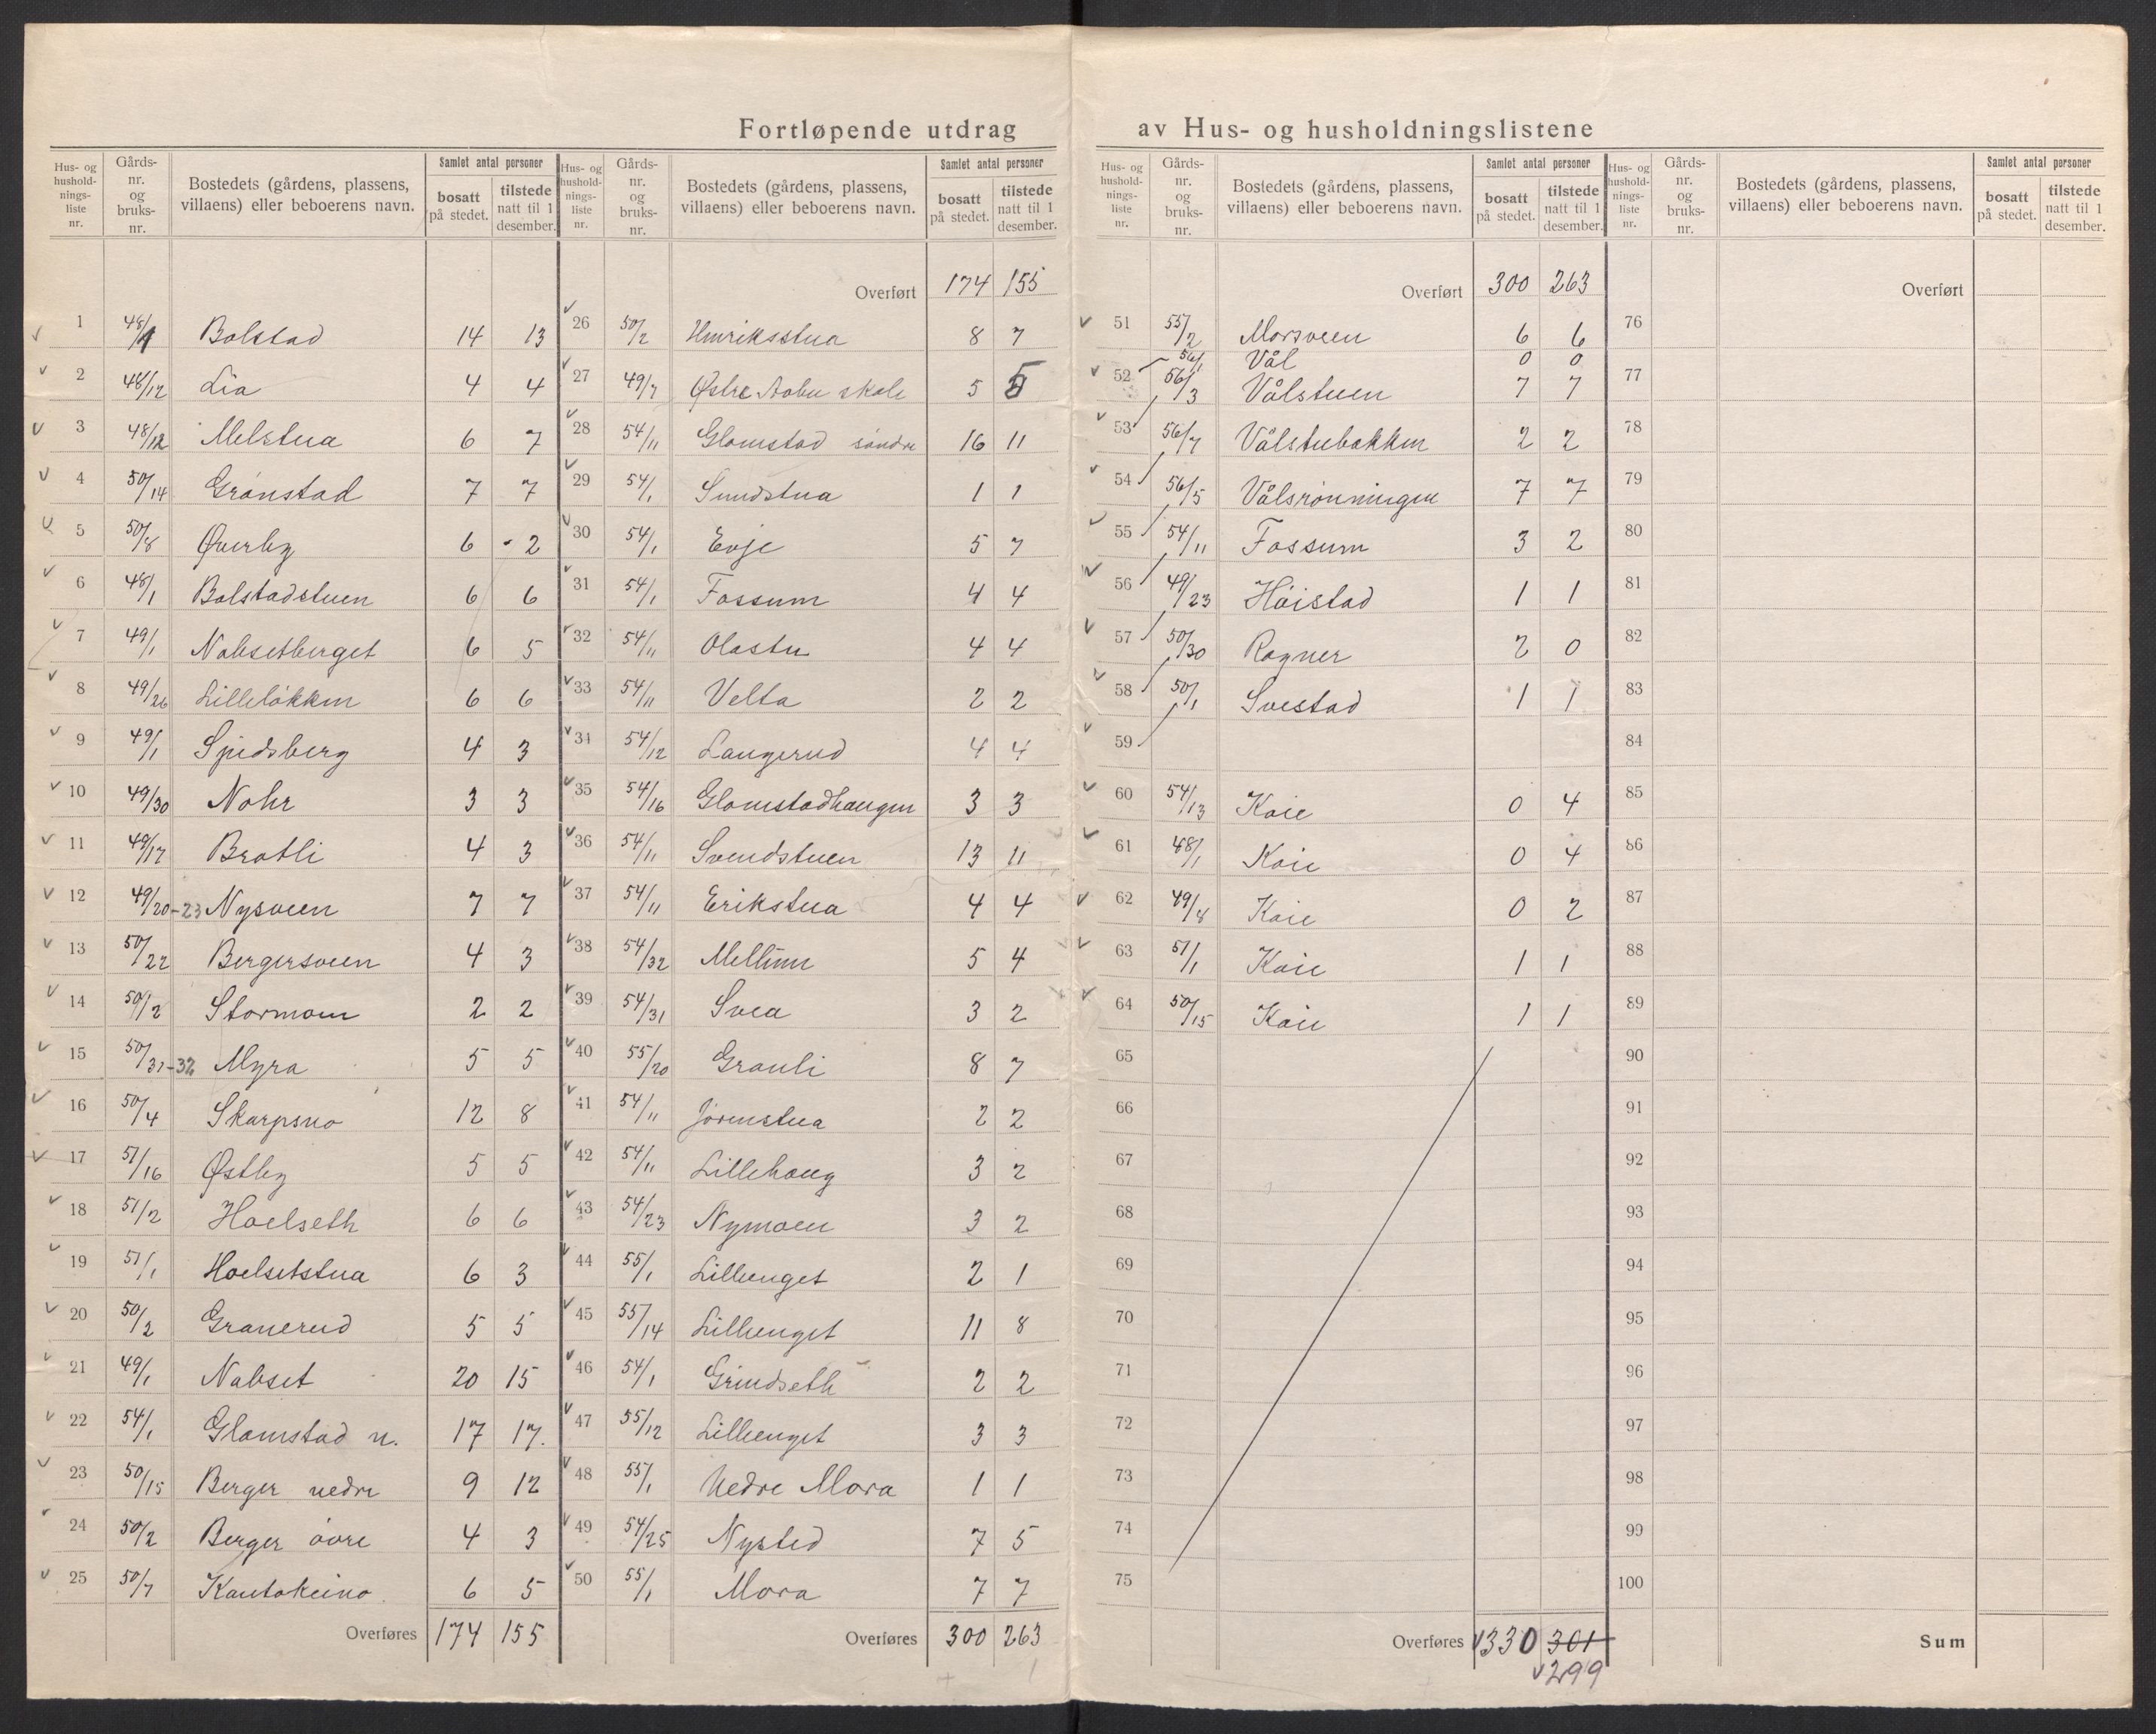 Fortløpende utdrag av Hus- og husholdningslistene
Hus- og husholdningsliste nr. | Gårds-nr. og bruks-nr. | Bostedets (gårdens, plassens, villaens) eller beboerens navn. | Samlet antal personer bosatt på stedet. | tilstede natt til 1 desember.
1 48/1 Bolstad 14 13
2 48/12 Lia 4 4
3 48/12 Melstua 6 7
4 50/14 Grønstad 7 7
5 50/8 Øverby 6 - 2
6 48/1 Bolstadstuen 6 6
7 49/1 Nabsetberget 6 5
8 49/26 Lilleløkken 6 6
9 49/1 Spidsberg 4 3
10 49/30 Nohr 3 3
11 49/17 Bratli 4 3
12 49/20-23 Nysveen 7 7
13 50/22 Bergersveen 4 3
14 50/2 Stormoen 2 2
15 50/31-32 Myra 5 5
16 50/4 Skarpsno 12 8
17 51/16 Østby 5 5
18 51/2 Hoelseth 6 6
19 51/1 Hoelsetstua 6 3
20 50/2 Granerud 5 5
21 49/1 Nabset 20 15
22 54/1 Glomstad n. 17 17.
23 50/15 Berger nedre 9 12
24 50/2 Berger øvre 4 3
25 50/7 Kautokeino 6 5
Overføres 174 155
Hus- og husholdningsliste nr. | Gårds-nr. og bruks-nr. | Bostedets (gårdens, plassens, villaens) eller beboerens navn. | Samlet antal personer bosatt på stedet. | tilstede natt til 1 desember.
Overført 174 155
26 50/2 Henriksstua 8 7
27 49/7 Østre Aabu skole 5 5
28 54/11 Glomstad søndre 16 11
29 54/1 Sundstua 1 1
30 54/1 Evje 5 7
31 54/1 Fossum 4 4
32 54/11 Olastu 4 4
33 54/11 Velta 2 2
34 54/12 Langerud 4 4
35 54/16 Glomstadhaugen 3 3
36 54/11 Svendstuen 13 11
37 54/11 Erikstua 4 4
38 54/32 Mellum 5 4
39 54/31 Svea 3 2
40 55/20 Granli 8 7
41 54/11 Jørnstua 2 2
42 54/11 Lillehaug 3 2
43 54/23 Nymoen 3 2
44 55/1 Lillenget 2 1
45 55/14 Lillenget 11 8
46 54/1 Grindseth 2 2
47 55/12 Lillenget 3 3
48 55/1 Nedre Mora 1 1
49 54/25 Nysted 7 5
50 55/1 Mora 7 7
Overføres 300 263
Hus- og husholdningsliste nr. | Gårds-nr. og bruks-nr. | Bostedets (gårdens, plassens, villaens) eller beboerens navn. | Samlet antal personer bosatt på stedet. | tilstede natt til 1 desember.
Overført 300 263
51 55/2 Morsveen 6 6
56/1 Vål 0 0
52 56/3 Vålstuen 7 7
53 56/7 Vålstubakken 2 2
54 56/5 Vålsrønningen 7 7
55 54/11 Fossum 3 2
56 49/23 Høistad 1 1
57 50/30 Ragner 2 0
58 50/1 Svestad 1 1
59
60 54/13 Koie 0 4
61 48/1 Koie 0 4
62 49/8 Koie 0 2
63 51/1 Koie 1 1
64 50/15 Koie 1 1
65
66
67
68
69
70
71
72
73
74
75
Overføres 330 301
299
Hus- og husholdningsliste nr. | Gårds-nr. og bruks-nr. | Bostedets (gårdens, plassens, villaens) eller beboerens navn. | Samlet antal personer bosatt på stedet. | tilstede natt til 1 desember.
Overført
76
77
78
79
80
81
82
83
84
85
86
87
88
89
90
91
92
93
94
95
96
97
98
99
100
Sum